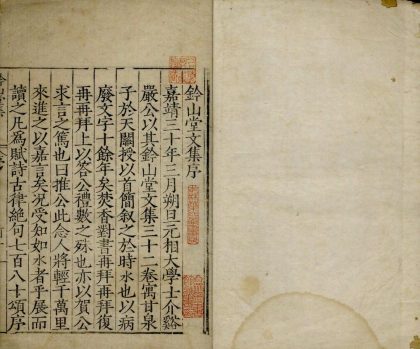 鈐山堂文集序
嘉靖三十年三月朔旦元相大學士介谿
嚴公以其鈐山堂文集三十二卷寓甘泉
子於天關授以首簡叙之於時水也以病
廢文字十餘年矣焚香對書再拜再拜復
再再拜上以答公禮數之殊也亦以賀公
求言之篤也曰推公此念人將輕千萬里
來進之以嘉言矣况受知如水者乎展而
讀之凡為賦詩古律絶句七百八十頌序